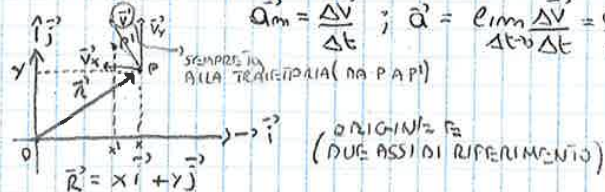 a⃗m = Δv⃗/Δt ; a⃗ = lim Δt→0 Δv⃗/Δt =
j⃗
v⃗
v⃗y
P'
y
v⃗x
P
SEMPRE TG
ALLA TRAIETTORIA (DA P A P')
R⃗
O
x' x
i⃗
(ORIGINE E
DUE ASSI DI RIFERIMENTO)
R⃗ = x i⃗ + y j⃗